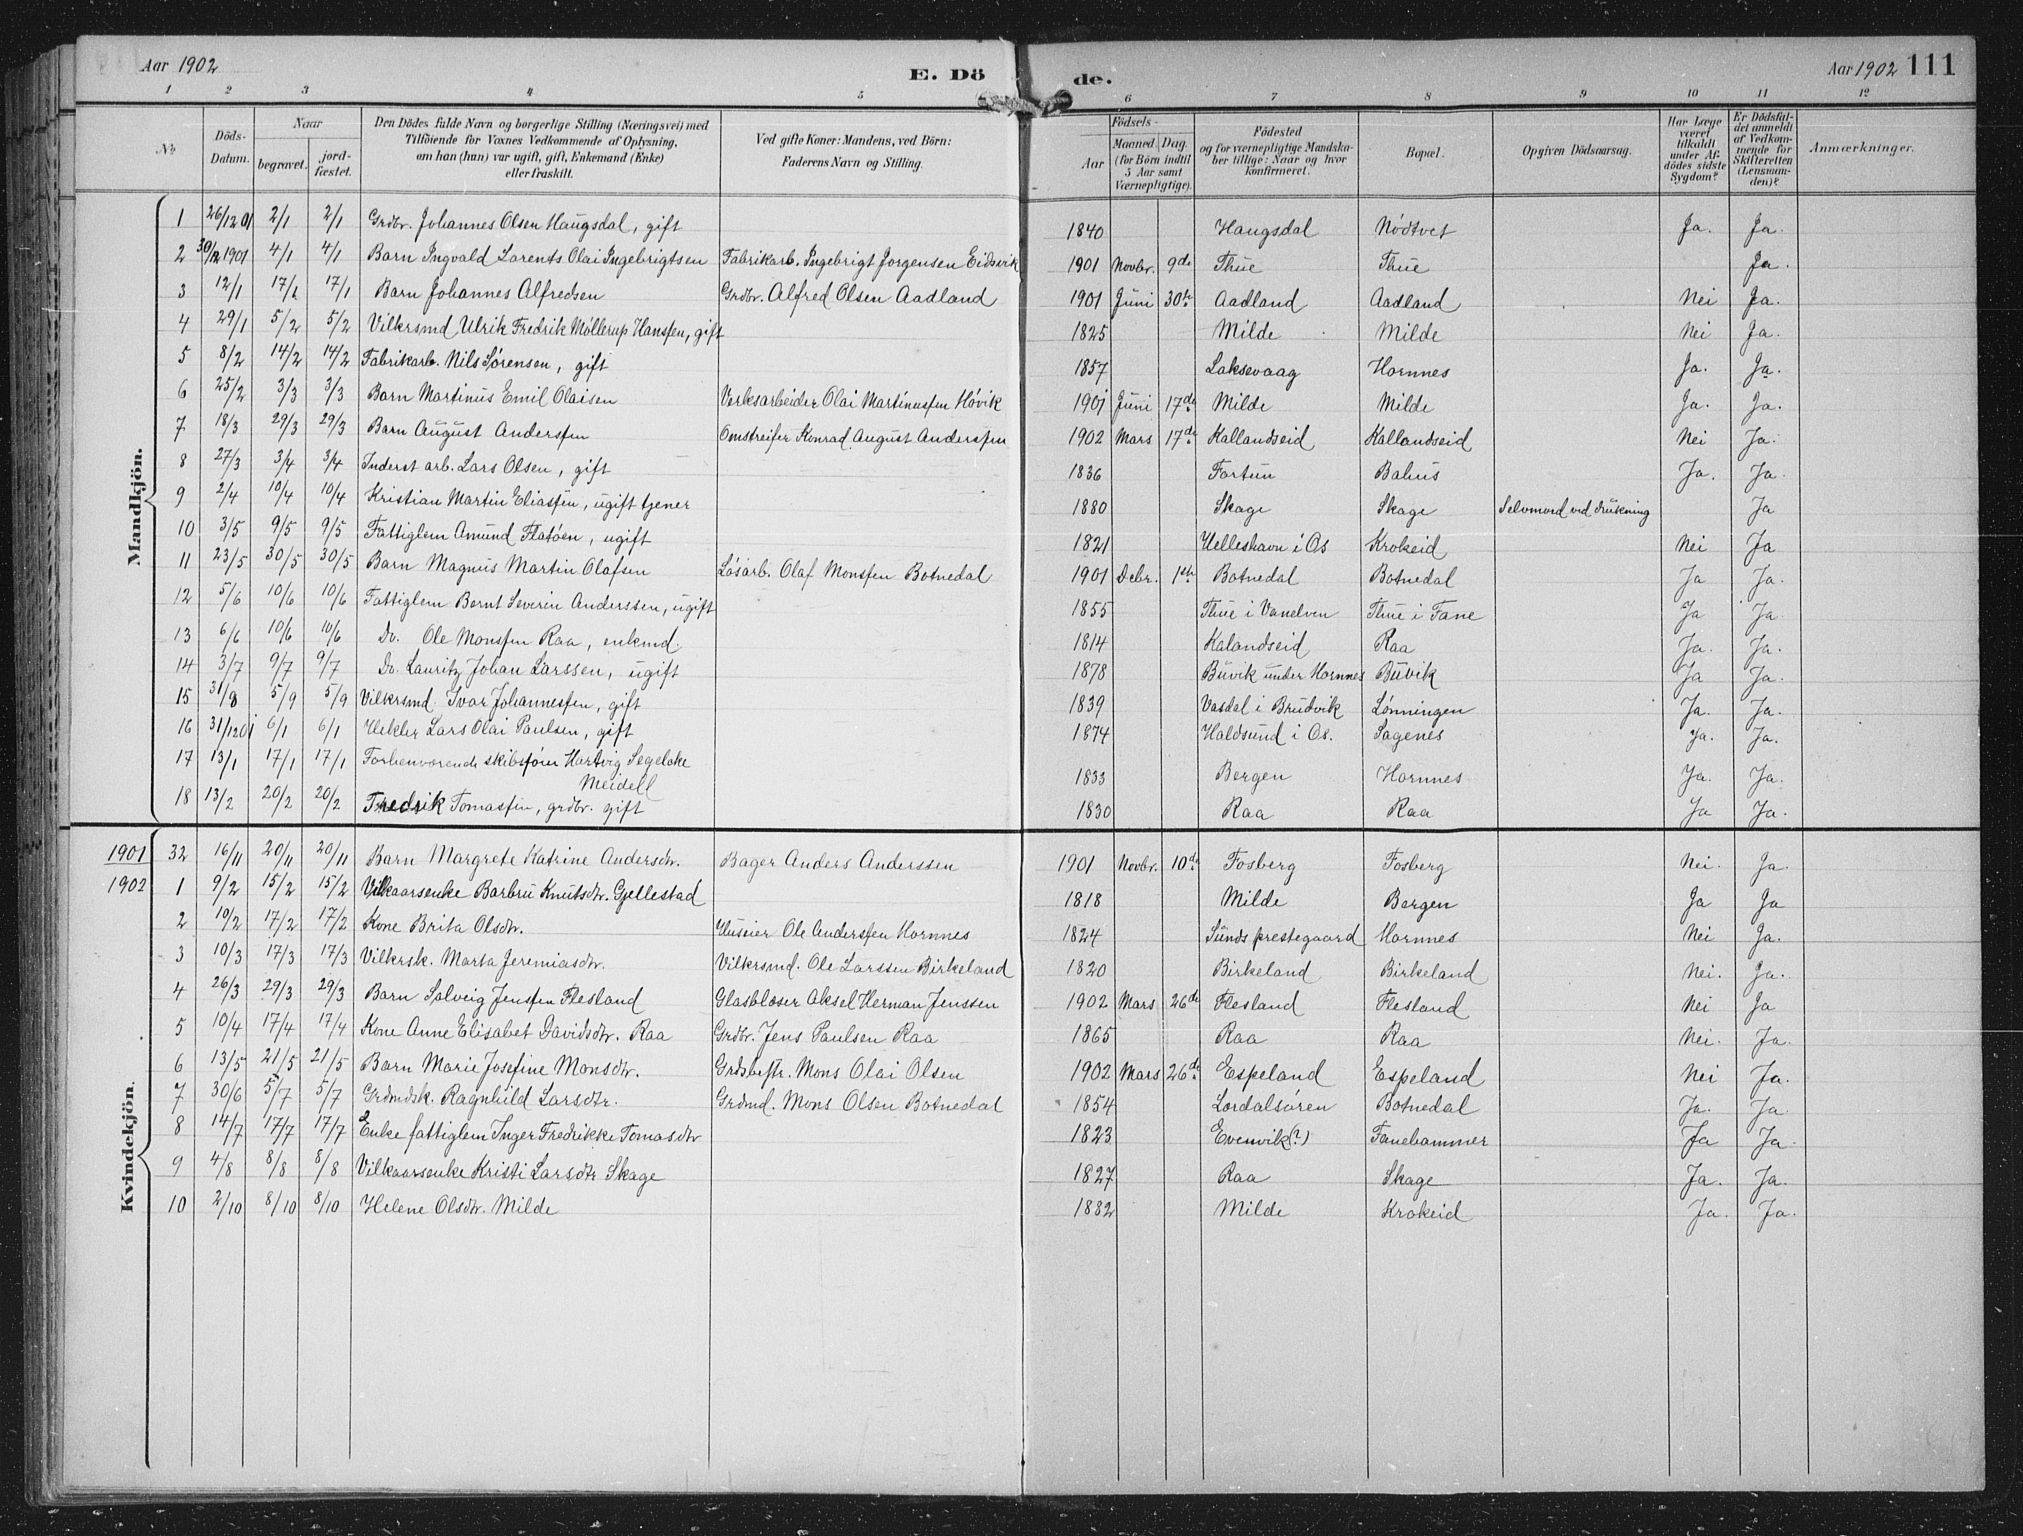 Aar 1902 E. Döde. Aar 1902 111
1 2 3 4 5 6 7 8 9 10 11 12
No. Döds-Datum. Naar begravet. jordfæstet. Den Dödes fulde Navn og borgerlige Stilling (Næringsvei) med Tilföiende for Voxnes Vedkommende af Oplysning, om han (hun) var ugift, gift, Enkemand (Enke) eller fraskilt. Ved gifte Koner: Mandens, ved Börn: Faderens Navn og Stilling. Födsels- Aar Maaned. Dag. (for Börn indtil 5 Aar samt Værnepligtige). Födested og for værnepligtige Mandskaber tillige: Naar og hvor konfirmeret. Bopæl. Opgiven Dödsaarsag. Har Læge været tilkaldt under Afdödes sidste Sygdom? Er Dödsfaldet anmeldt af Vedkommende for Skifteretten (Lensmanden)? Anmærkninger.
Mandkjön.
1 26/12 01 2/1 2/1 Grdbr. Johannes Olsen Haugsdal, gift 1840 Haugsdal Nødtvet Ja. Ja.
2 30/12 1901 4/1 4/1 Barn Ingvald Lorents Olai Ingebrigtsen Fabrikarb. Ingebrigt Jørgensen Eidsvik 1901 Novbr. 9de Thue Thue Ja.
3 12/1 17/1 17/1 Barn Johannes Alfredsen Grdbr. Alfred Olsen Aadland 1901 Juni 30te Aadland Aadland Nei Ja.
4 29/1 5/2 5/2 Vilkrsmd Ulrik Fredrik Møllerup Hanssen, gift 1825 Milde Milde Nei Ja.
5 8/2 14/2 14/2 Fabrikarb. Nils Sørensen, gift 1857 Laksevaag Hornnes Ja. Ja.
6 25/2 3/3 3/3 Barn Martinus Emil Olaisen Verksarbeider Olai Martinussen Høvik 1901 Juni 17de Milde Milde Ja. Ja.
7 18/3 29/3 29/3 Barn August Anderssen Omstreifer Konrad August Anderssen 1902 Mars 17de Kallandseid Kallandseid Nei Ja.
8 27/3 3/4 3/4 Inderst arb. Lars Olsen, gift 1836 Fortun Bahus Ja. Ja.
9 2/4 10/4 10/4 Kristian Martin Eliassen, ugift tjener 1880 Skage Skage Selvmord ved drukning Ja
10 3/5 9/5 9/5 Fattiglem Amund Flatøen, ugift 1821 Helleshavn i Os Krokeid Nei Ja
11 23/5 30/5 30/5 Barn Magnus Martin Olafsen Løsarb. Olaf Monssen Botnedal 1901 Debr. 1ste Botnedal Botnedal Ja Ja.
12 5/6 10/6 10/6 Fattiglem Bernt Severin Anderssen, ugift 1855 Thue i Vanelven Thue i Fane Ja Ja.
13 6/6 10/6 10/6 Do. Ole Monssen Raa, enkmd. 1814 Kalandseid Raa Ja. Ja.
14 3/7 9/7 9/7 Do. Lauritz Johan Larssen, ugift 1878 Buvik under Hornnes Buvik Ja Ja.
15 31/8 5/9 5/9 Vilkrsmd. Ivar Johannessen, gift 1839 Vasdal i Brudvik Lønningen Ja. Ja.
16 31/12 01 6/1 6/1 Hekler Lars Olai Paulsen, gift 1874 Haldsund i Os. Sagenes Ja. Ja.
17 13/1 17/1 17/1 Forhenværende skibsfører Hartvig Segelcke Meidell 1833 Bergen Hornnes Ja. Ja.
18 13/2 20/2 20/2 Fredrik Tomassen, grdbr. gift 1830 Raa Raa Ja Ja.
Kvindekjön.
1901 32 16/11 20/11 20/11 Barn Margrete Katrine Andersdtr. Bager Anders Anderssen 1901 Novbr. 10de Fosberg Fosberg Nei. Ja.
1902 1 9/2 15/2 15/2 Vilkaarsenke Barbru Knutsdtr. Gjellestad 1818 Milde Bergen Ja Ja
2 10/2 17/2 17/2 Kone Brita Olsdtr. Husier Ole Anderssen Hornnes 1824 Sunds prestegaard Hornnes Nei Ja.
3 10/3 17/3 17/3 Vilkrsk. Marta Jeremiasdtr. Vilkrsmd. Ole Larssen Birkeland 1820 Birkeland Birkeland Nei. Ja.
4 26/3 29/3 29/3 Barn Solveig Jenssen Flesland Glasblæser Aksel Herman Jenssen 1902 Mars 26de Flesland Flesland Nei Ja
5 10/4 17/4 17/4 Kone Anne Elisabet Davidsdtr. Raa Grdbr. Jens Paulsen Raa 1865 Raa Raa Nei. Ja.
6 13/5 21/5 21/5 Barn Marie Josefine Monsdtr. Grdsbestr. Mons Olai Olsen 1902 Mars 26de Espeland Espeland Nei Ja.
7 30/6 5/7 5/7 Grdmdsk. Ragnhild Larsdtr. Grdmd. Mons Olsen Botnedal 1854 Lærdalsøren Botnedal Ja. Ja
8 14/7 17/7 17/7 Enke fattiglem Inger Fredrikke Tomasdtr 1823 Evenvik(?) Fanehammer Ja Ja.
9 4/8 8/8 8/8 Vilkaarsenke Kristi Larsdtr Skage 1827 Raa Skage Ja. Ja.
10 2/10 8/10 8/10 Helene Olsdtr. Milde 1832 Milde Krokeid Ja. Ja.